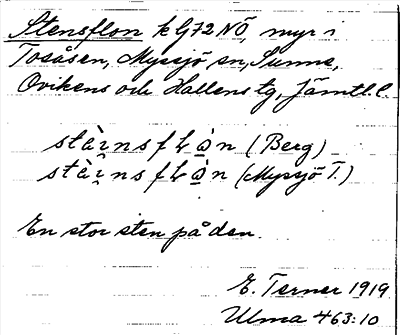 Stensflon k G72 NÖ, myr i
Tosåsen, Myssjö sn, Sunne,
Ovikens och Hallens tg, Jämtl. l.
stàinsflo̠n (Berg)
stàinsflo̠n (Myssjö T.)
En stor sten på den.
E. Terner 1919
Ulma 463:10